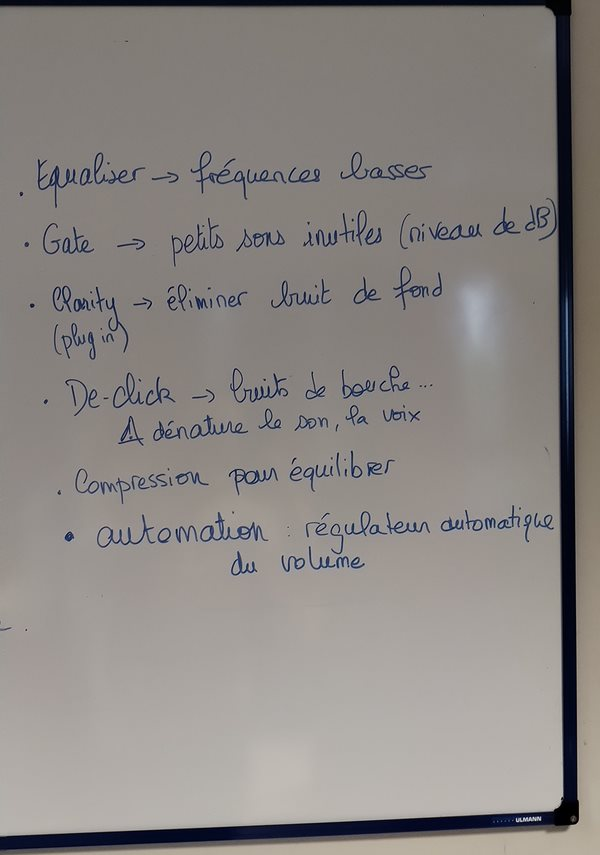 . Equaliser → fréquences basses
. Gate → petits sons inutiles (niveau de dB)
. Clarity → éliminer bruit de fond
(plug in)
. De-click → bruits de bouche...
⚠ dénature le son, la voix
. Compression pour équilibrer
• automation : régulateur automatique
du volume
ULMANN